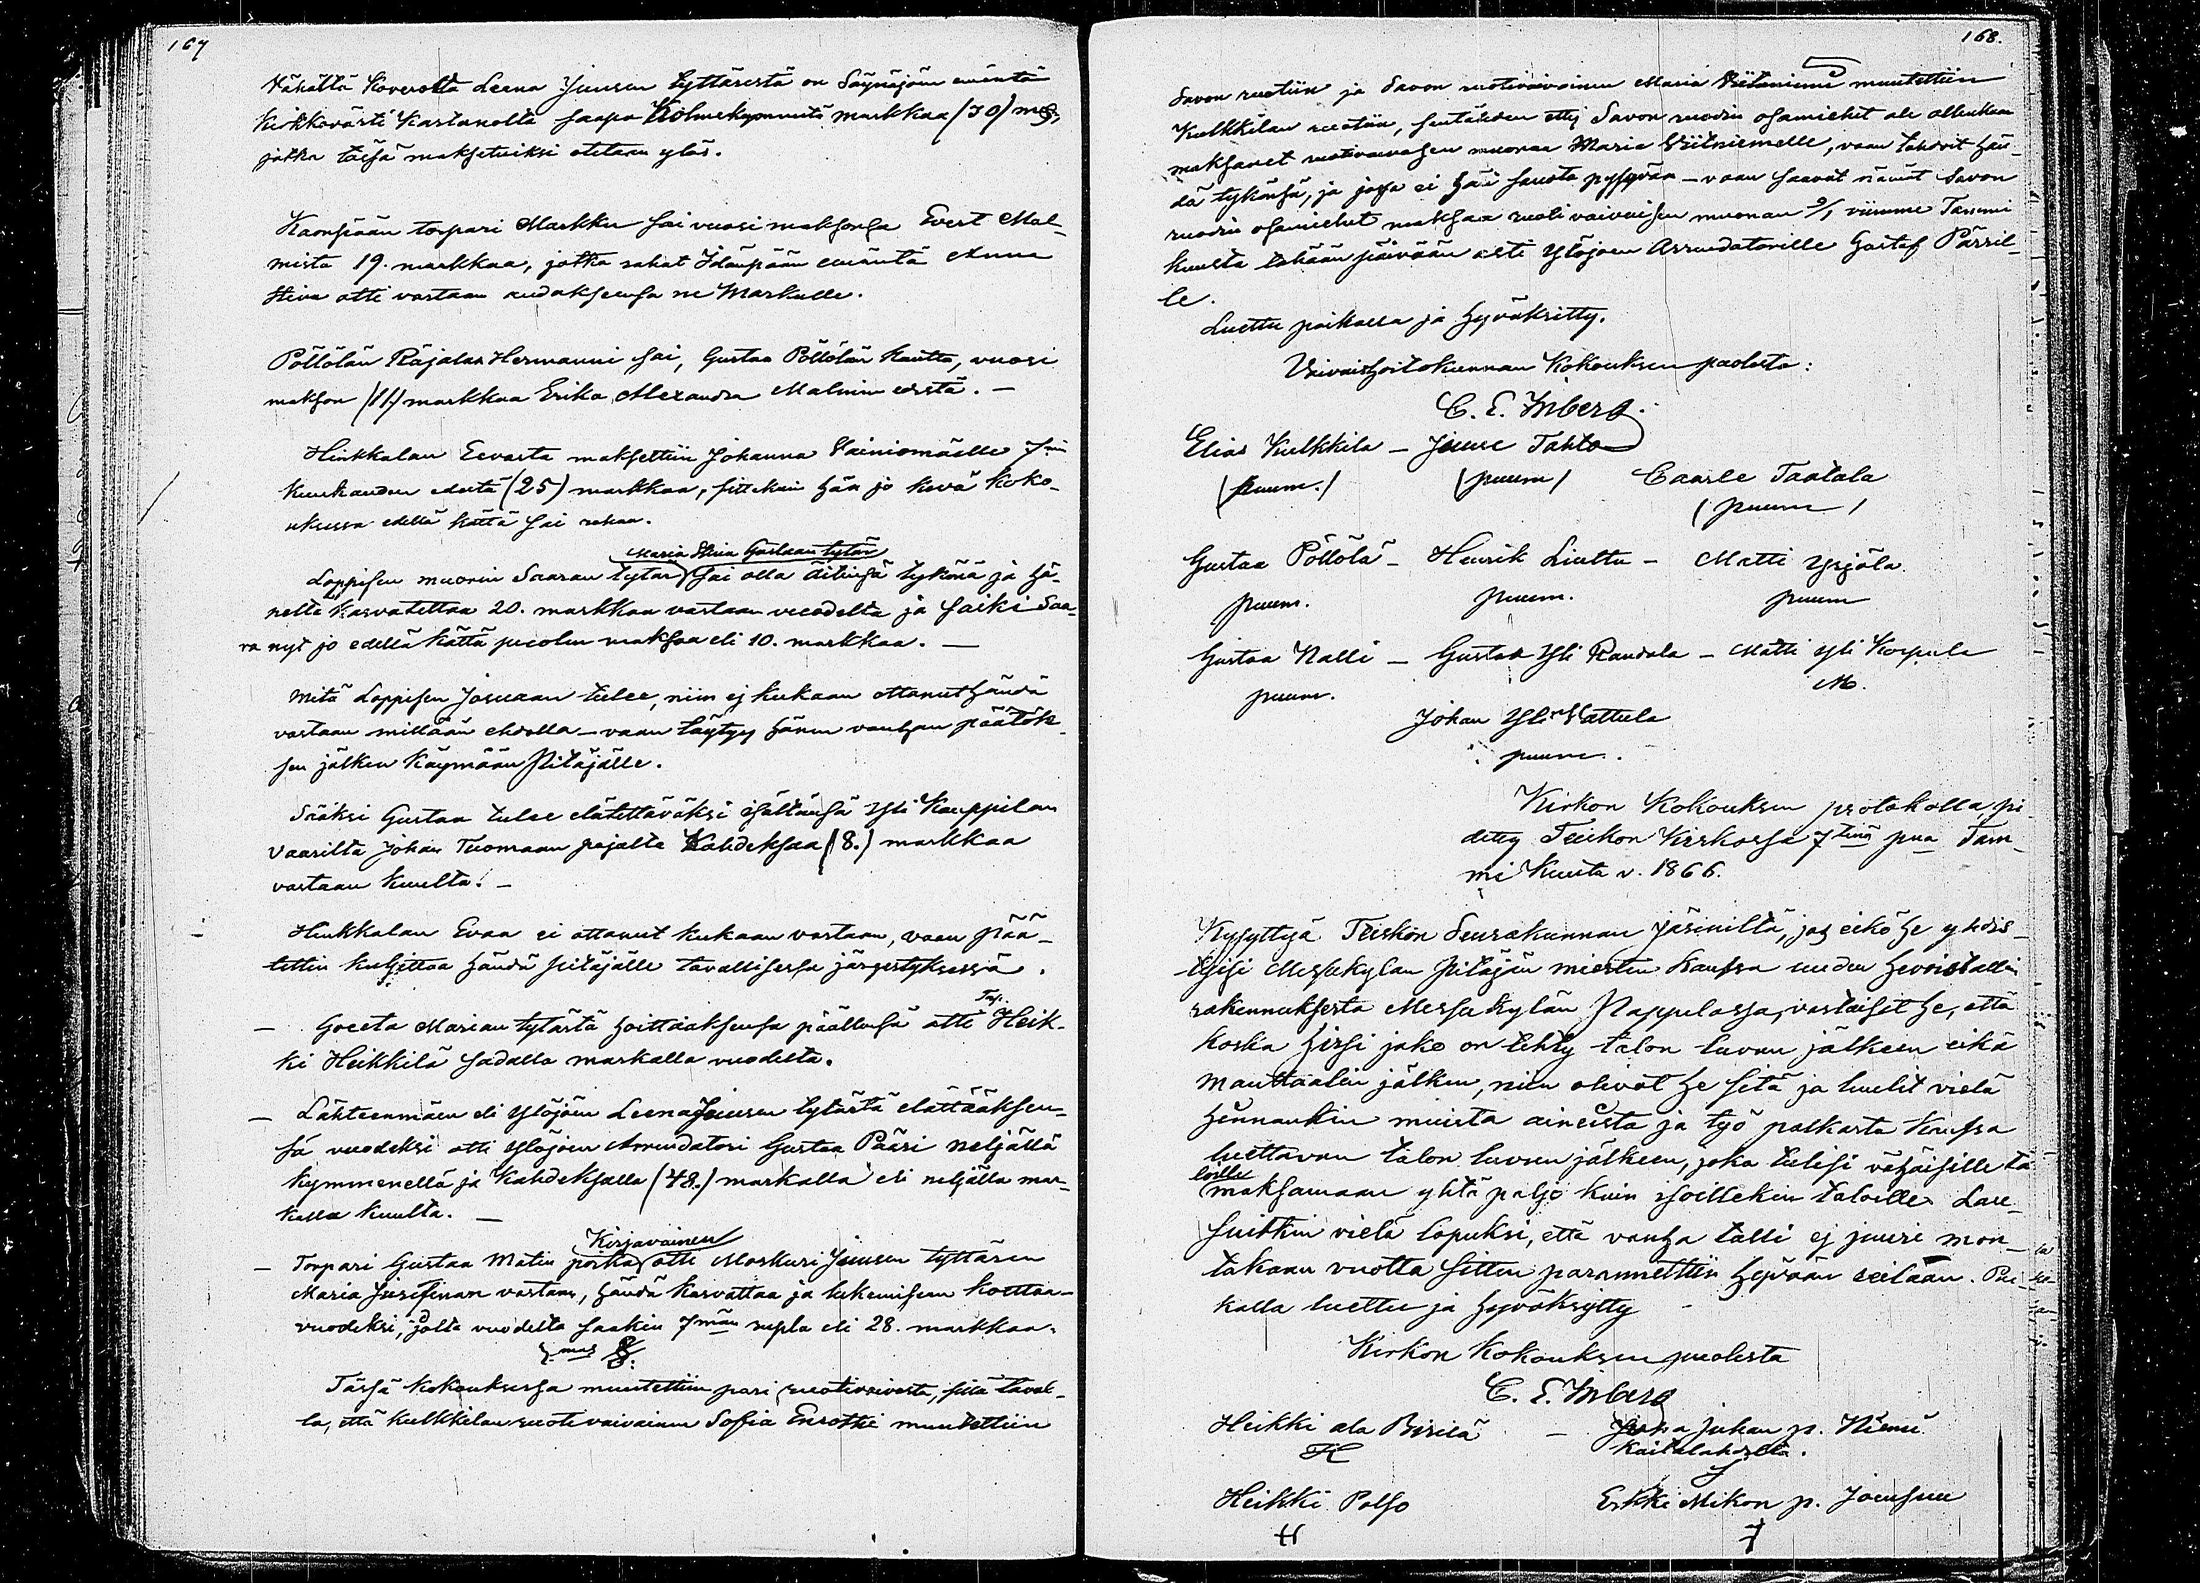 167
Vähältä Koverolta Leena Juusen tyttärestä on Säynäjoen emäntä
Kirkkovärti Kastarilta saapa Kolmekymmentä markkaa (30) mg,
jotka täesä maksetuiksi otetaan ylös.
Kaanpään torpari Markku sai vuosi maksonsa Evert Mal-
mista 19. markkaa, jotka rahat Idänpään emäntä Anna
Stiva otti vastaan andaksensa ne Markulle.
Pöllölän Räjalan Hermanni sai, Gustaa Pöllölän kautta, vuosi
makson (11) markkaa Erika Alexandra Malmin edestä. —
Hinkkalan Eevasta maksettiin Johanna Vainiomäelle 7män
kuukauden edestä (25) markkaa, sittekuin hän jo kevä koko-
uksessa edellä kättä sai rahaa.
Maria Stiina Gustaan tytär
Loppisen muorin Saaran tytar sai olla äitinsä tykönä ja hä-
neltä kasvatettaa 20. markkaa vastaan vuodelta ja saiki Saa-
ra nyt jo edellä kättä puolen maksoa eli 10. markkaa. —
Mitä Loppisen Josuaan tulee, niin ej kukaan ottanut händä
vastaan millään ehdolla — vaan täytyy hänen vanhan päätök-
sen jälken käymään Pitäjälle.
Sääksi Gustaa tulee elätettäväksi isältänsä Yli Kauppilan
Vaarilta Johan Tuomaan pojalta Kahdeksaa (8.) markkaa
vastaan kuulta. —
Hinkkalan Evaa ei ottanut kukaan vastaan, vaan pää-
tettin kuljettaa händä pitäjälle tavallisessa järjestyksessä.
Tap.
— Greeta Marian tytärtä hoittaaksensa päällensä otti Heik-
ki Heikkilä sadalla markalla vuodelta.
— Lähteenmäen eli Ylöjöen Leena Juusen tytärtä elättääksen-
sä vuodeksi otti Ylöjoen Arrendatori Gustaa Pääri neljällä
kymmenellä ja Kahdeksalla (48.) markalla eli neljällä mar-
kalla kuulta. —
Kirjavainen
— Torpari Gustaa Matin poika otti Maskuri Juusen tyttären
Maria Josefinan vastaan, händä kasvattaa ja lukemiseen koettaa
vuodeksi, jolta vuodelta saakin 7män rupla eli 28. markkaa.
Tässä Kokouksessa muutettiin pari ruotivaivasta, sillä taval-
la, että Kulkkilan ruoti vaivainen Sofia Enrothi muutettiin
168.
Savon ruotiin ja Savon ruotivaivainen Maria Viitaniemi muutettiin
Kulkkilan ruotiin, sentähden ettej Savon ruodin osamiehet ole ollenkaan
maksanet ruotivaivasen muonaa Maria Viitniemelle, vaan tahdoit hän-
dä tykönsä, ja jossa ei hän suosta pysyvän — vaan saavat nämät Savon
ruodin osamiehet maksaa ruoti vaivaisen muonan 9/1 viimme Tammi
kuusta tähään päivään asti Ylöjoen Arrendatorille Gustaf Pärril-
le.
Luettu paikassa ja hyväksitty.
Vaivaishoitokunnan Kokouksen puolesta:
C. E. Inberg.
Elias Kulkkila — Juuse Tahto
(puum.) (puum) Caarle Taatala
(puum)
Gustaa Pöllölä — Henrik Liuttu — Matti Yrjölä
puum. puum. puum
Gustaa Nalli — Gustaa Yli Raudala — Matti Yli Korpula
puum. M.
Johan Yli Vattula
puum.
Kirkon Kokouksen protokolla, pi
detty Teiskon Kirkossa 7tenä pnä Tam-
mi Kuuta v. 1866.
Kysyttyä Teiskon Seurakunnan jäseniltä, jos eikö he yhdis-
tyisi Messukylän Pitäjän miesten kanssa uuden hevoistallin
rakennuksesta Messukylän Pappilassa, vastaisit he, että
koska hirsi jako on tehty talon luvun jälkeen eikä
manttaalin jälken, niin olivat he sitä ja luulit vielä
hennankin muista aineista ja työ palkasta kanssa
luettavan talon luvun jälkeen, joka tulisi vähäisille ta
loille
maksamaan yhtä paljo kuin isoillekin taloille. Lau-
suittin vielä lopuksi, että vanha talli ej juuri mon-
takaan vuotta sitten parannettiin hyvään seilaan. Pai-
kalla luettu ja hyväksytty
Kirkon Kokouksen puolesta
C. E. Inberg
Heikki ala Pirilä — Juha Juhan p. Niemi
H Kaitalahdelta.
Heikki Palso Erkki Mikon p. Jouhsuu
H